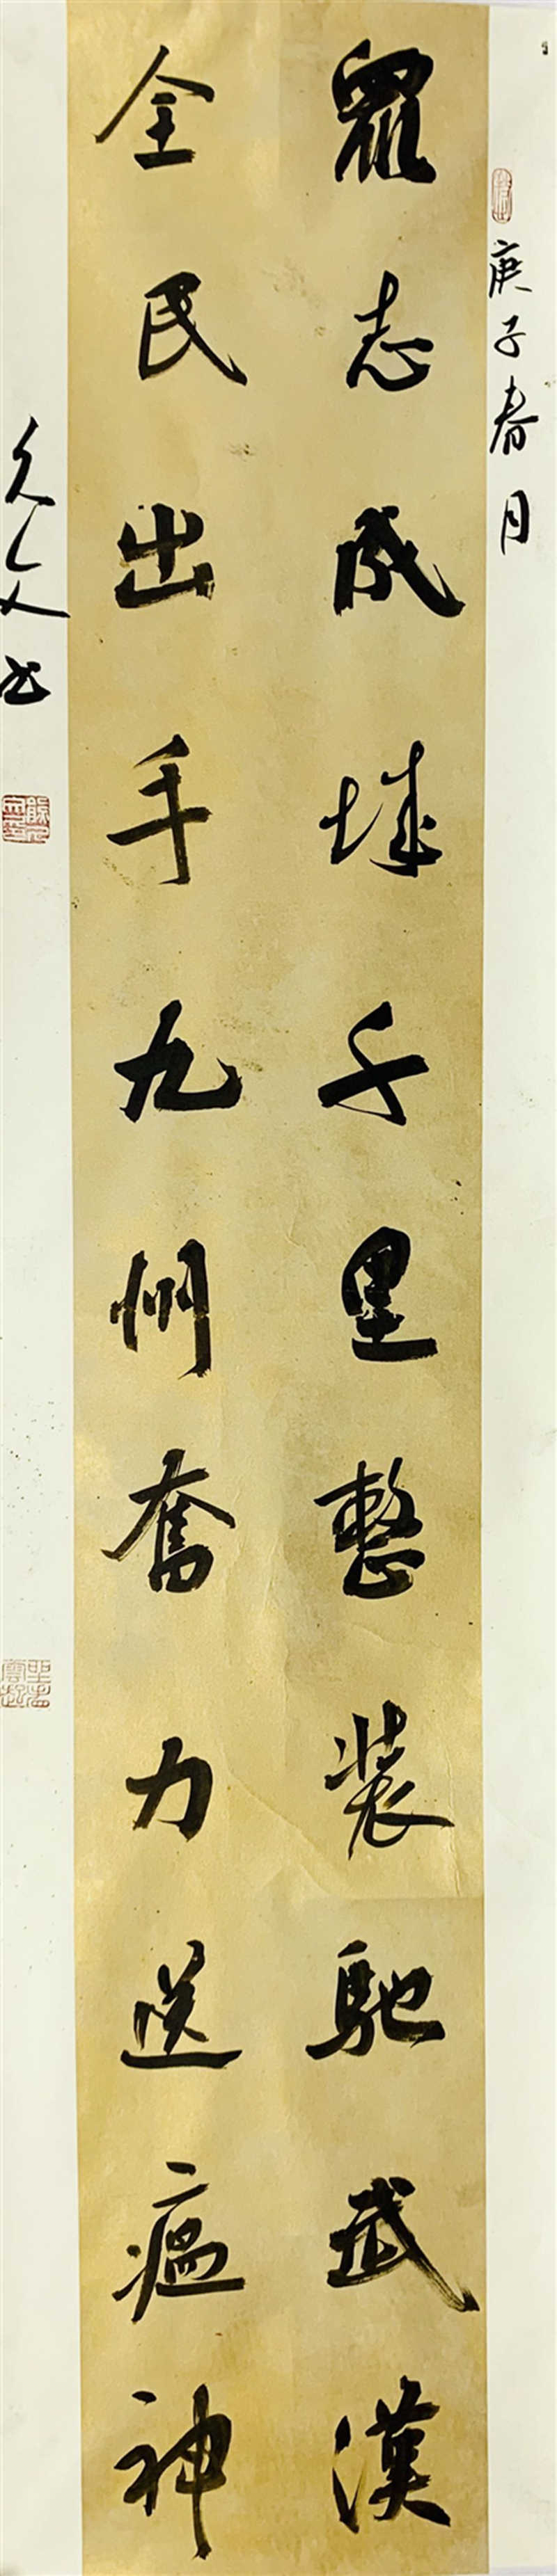 庚子春月
眾志成城千里整裝馳武漢
全民出手九州奮力送瘟神